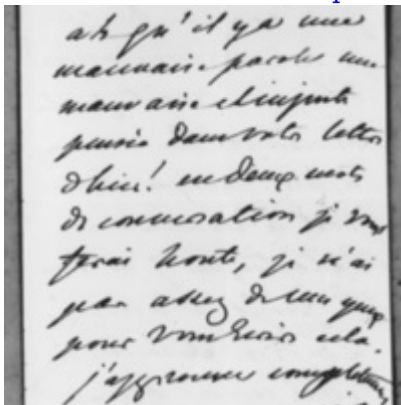 ah qu'il y a une
mauvaise parole une
mauvaise et injuste
pensée dans votre lettre
d'hier! en deux mots
de conversation je vous
ferai honte, je n'ai
pas assez de
pour vous écrire cela.
j'approuve complètement